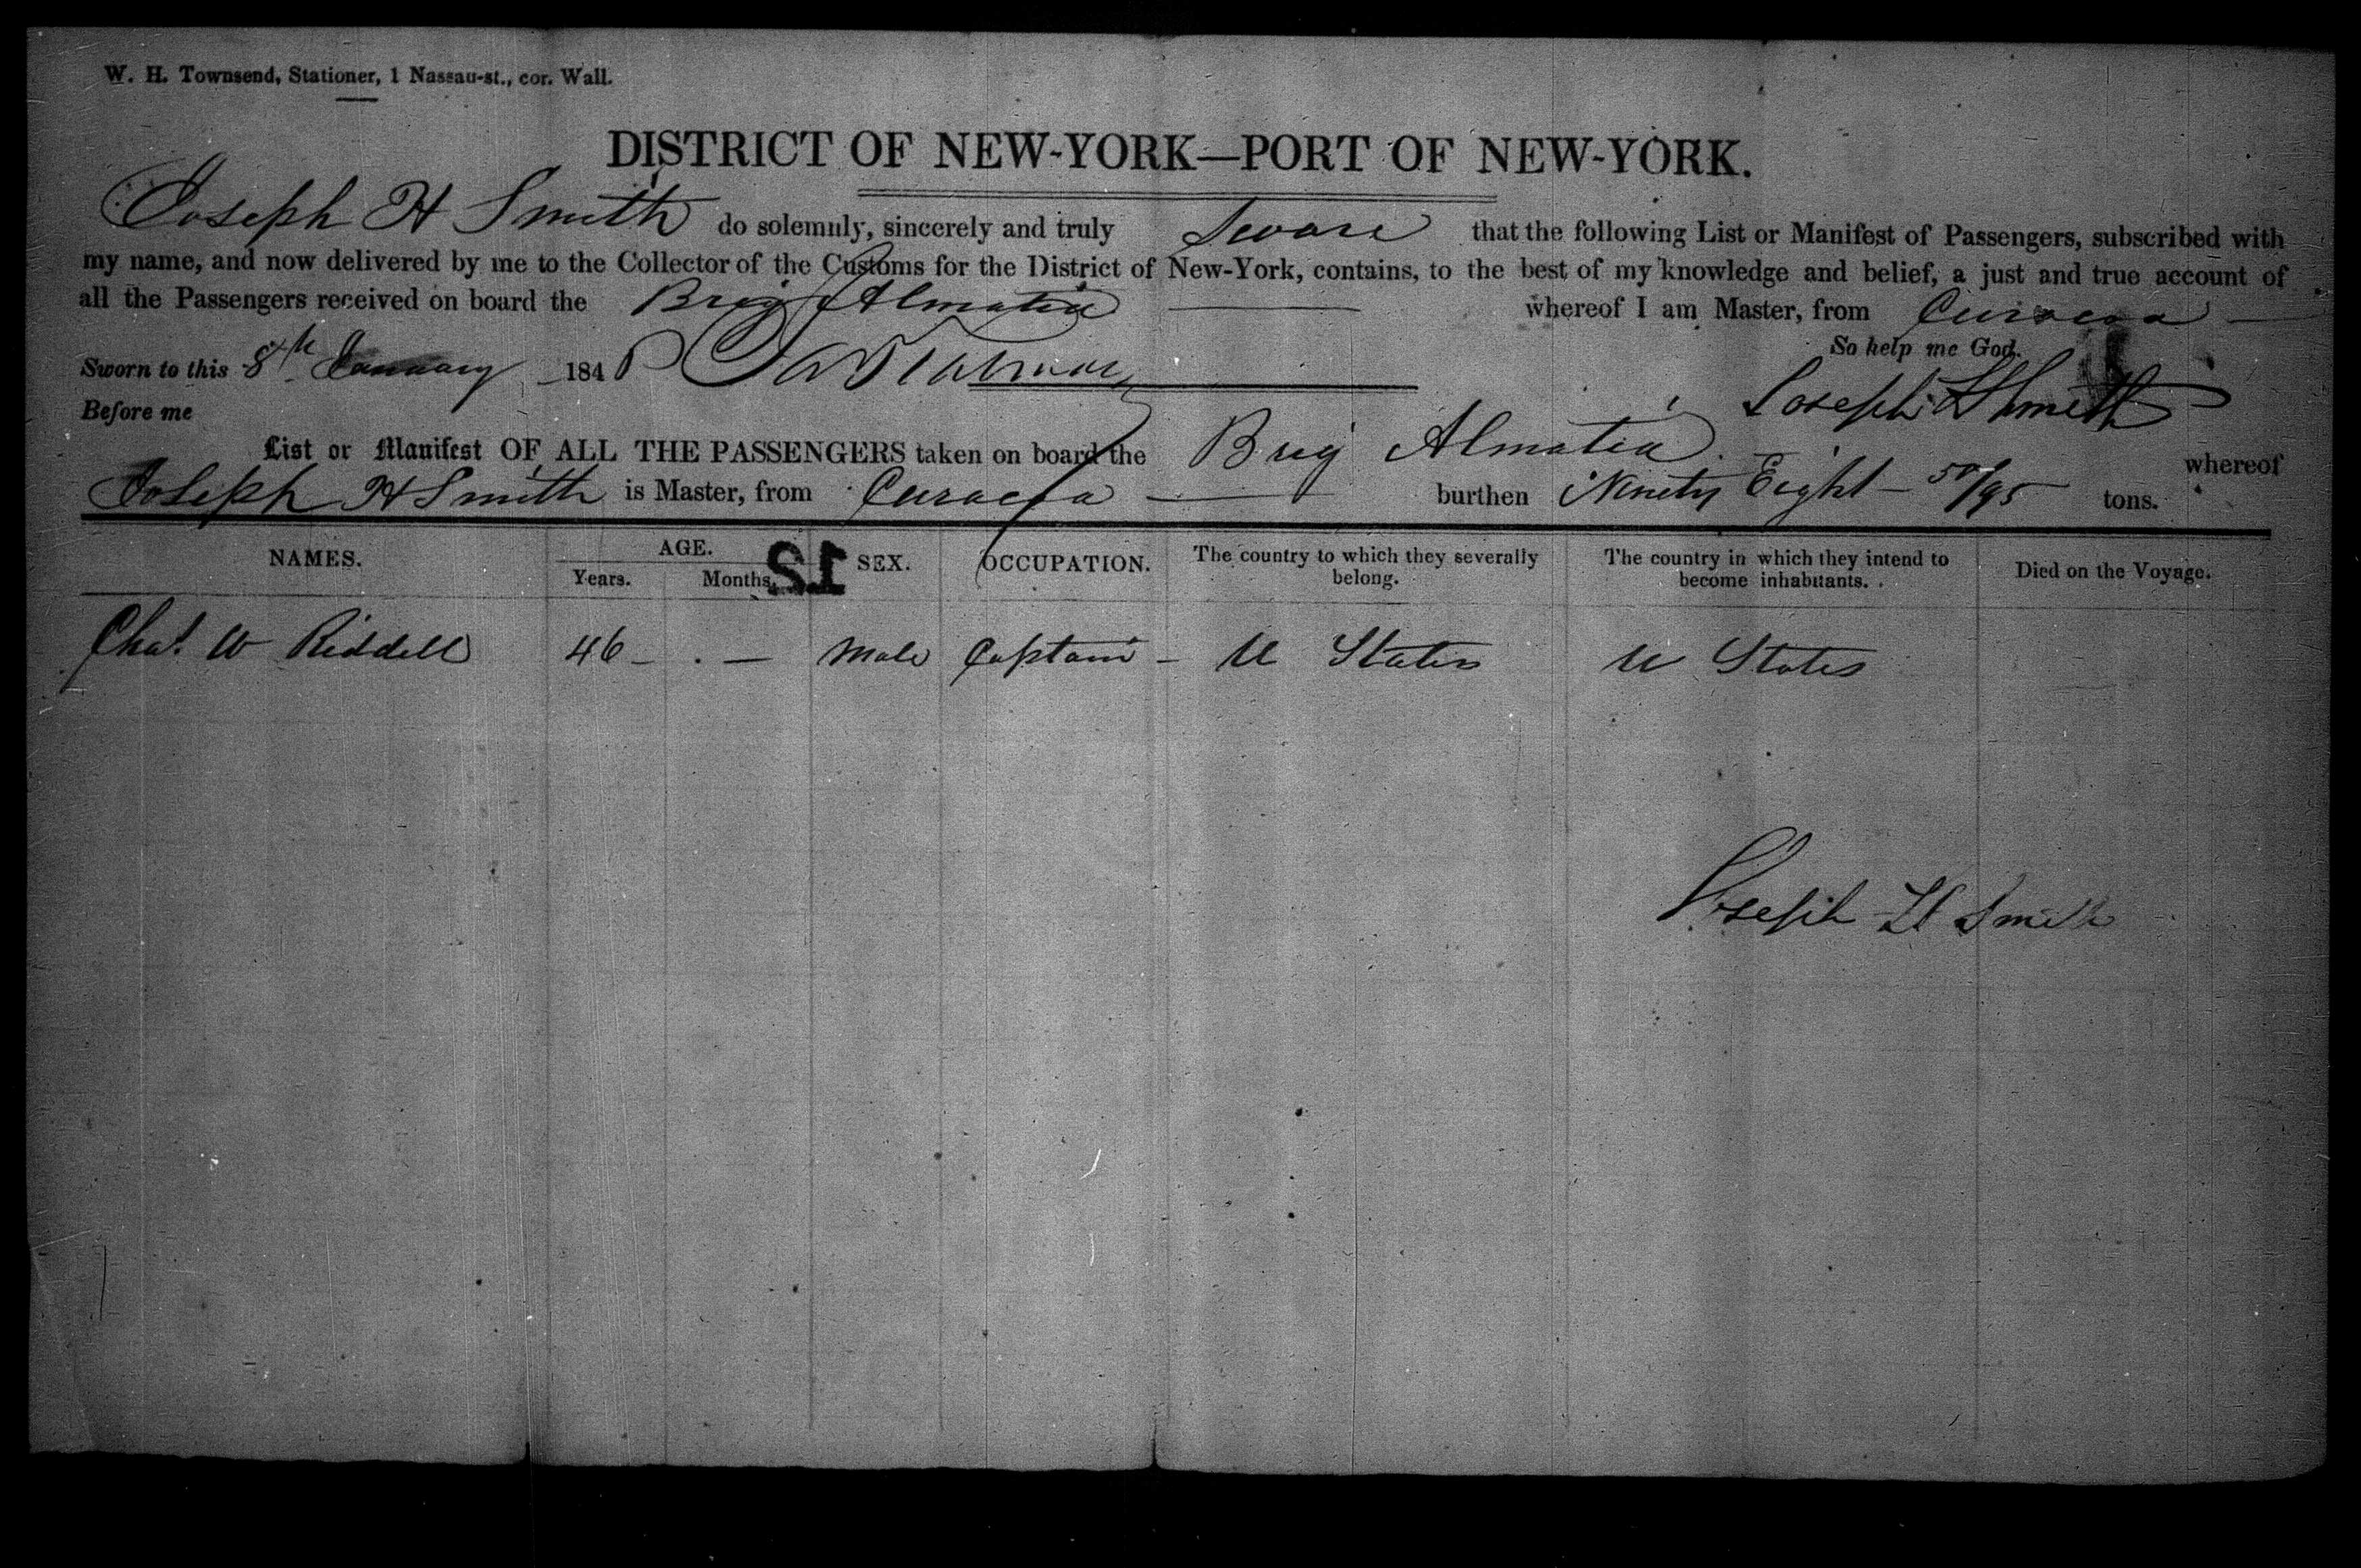 W. H. Townsend, Stationer, 1 Nassau-st., cor. Wall.
DISTRICT OF NEW-YORK—PORT OF NEW-YORK.
Joseph H Smith do solemnly, sincerely and truly Swear that the following List or Manifest of Passengers, subscribed with
my name, and now delivered by me to the Collector of the Customs for the District of New-York, contains, to the best of my knowledge and belief, a just and true account of
all the Passengers received on board the Brig Almatia whereof I am Master, from Curacoa
So help me God.
Sworn to this 8th January 184
Joseph H Smith
Before me
List or Manifest OF ALL THE PASSENGERS taken on board the Brig Almatia whereof
Joseph H Smith is Master, from Curacoa burthen Ninety Eight 50/95 tons.
NAMES. AGE. SEX. OCCUPATION. The country to which they severally belong. The country in which they intend to become inhabitants. Died on the Voyage.
Years. Months.
12
Chas. W Riddell 46 - . — Male Captain - U States U States
Joseph H Smith